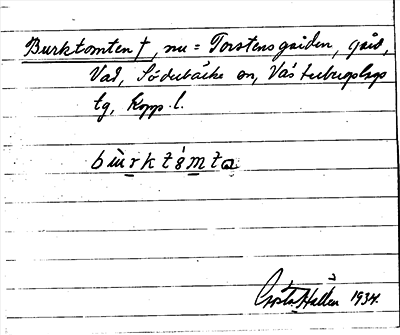 Burktomten †, nu = Torstensgården, gård,
Vad, Söderbärke sn, Västerbergslags
tg, Kopp. l.
bùrktómta
Gösta Hallén 1934.